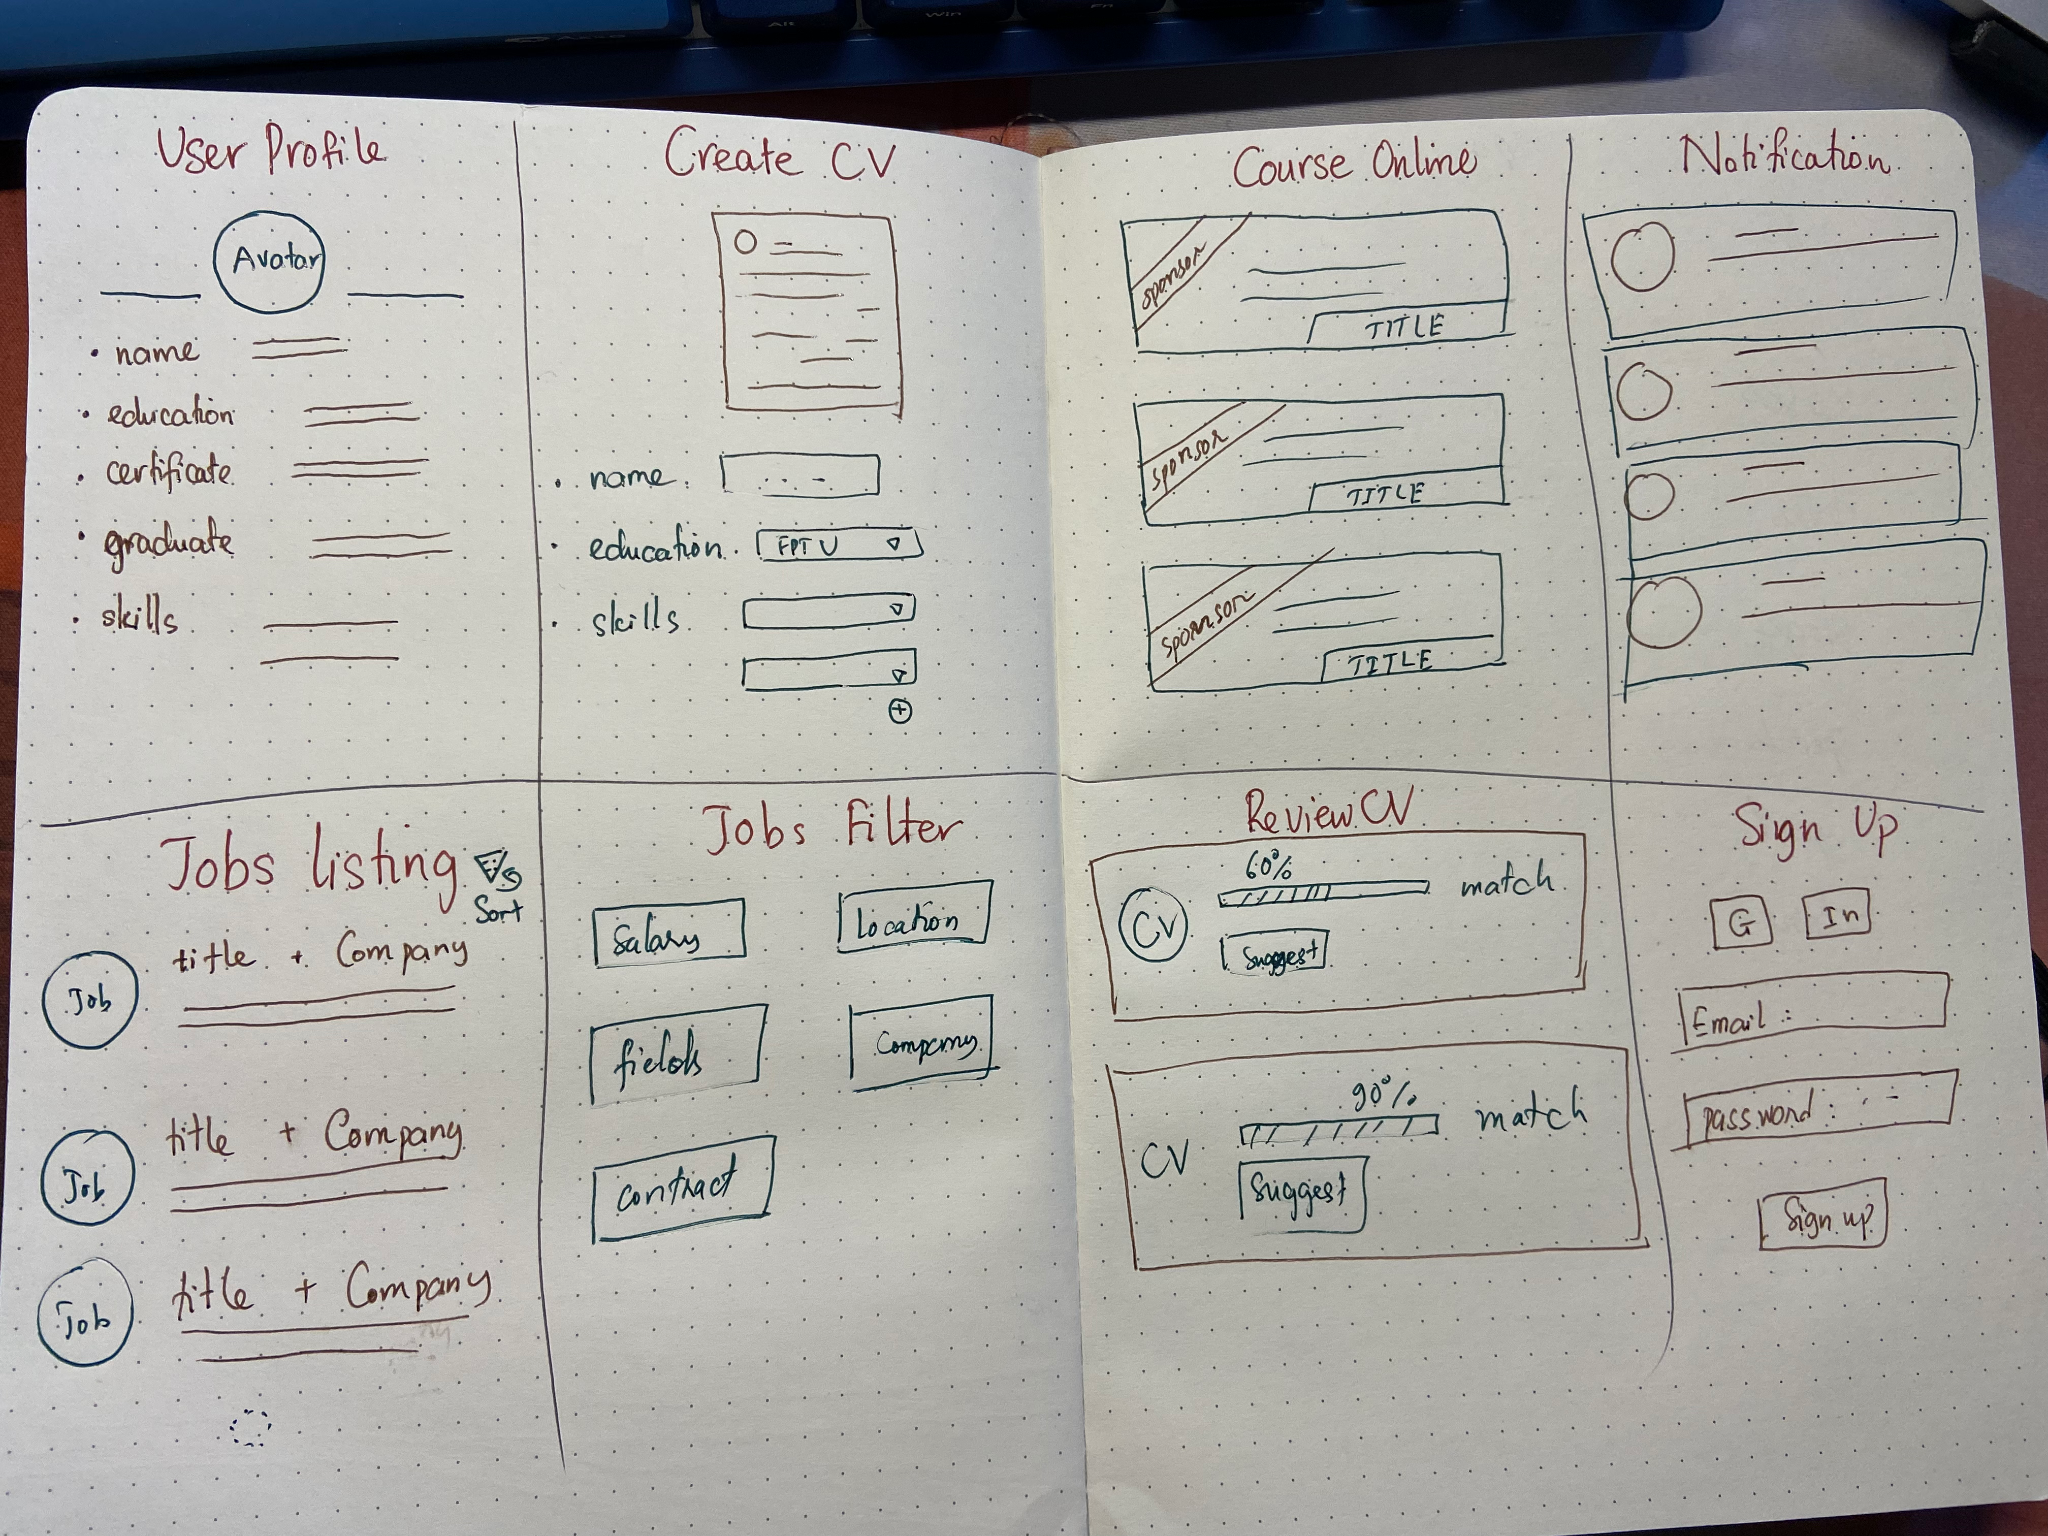 Alt
Win
Fn
User Profile
Avatar
name
education
certificate
graduate
skills
Create CV
name
education
FPT U
skills
+
Course Online
sponsor
TITLE
sponsor
TITLE
sponsor
TITLE
Notification
Jobs listing
Sort
Job
title + Company
Job
title + Company
Job
title + Company
Jobs Filter
Salary
Location
fields
Company
contract
Review CV
60%
CV
match
Suggest
90%
CV
match
Suggest
Sign Up
G
In
Email :
password :
Sign up